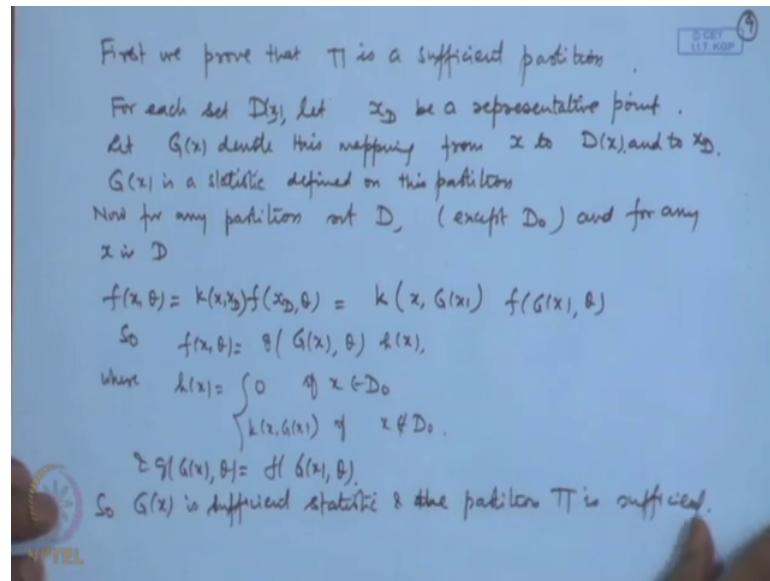 ④
© CET
I.I.T. KGP
First we prove that Π is a sufficient partition.
For each set D(x), let x_D be a representative point.
Let G(x) denote this mapping from x to D(x), and to x_D.
G(x) is a statistic defined on this partition
Now for any partition set D, (except D₀) and for any
x in D
f(x, θ) = k(x, x_D) f(x_D, θ) = k(x, G(x)) f(G(x), θ)
So f(x, θ) = g(G(x), θ) h(x),
where h(x) = { 0 if x ∈ D₀
k(x, G(x)) if x ∉ D₀.
& g(G(x), θ) = f(G(x), θ).
So G(x) is sufficient statistic & the partition Π is sufficient.
NPTEL